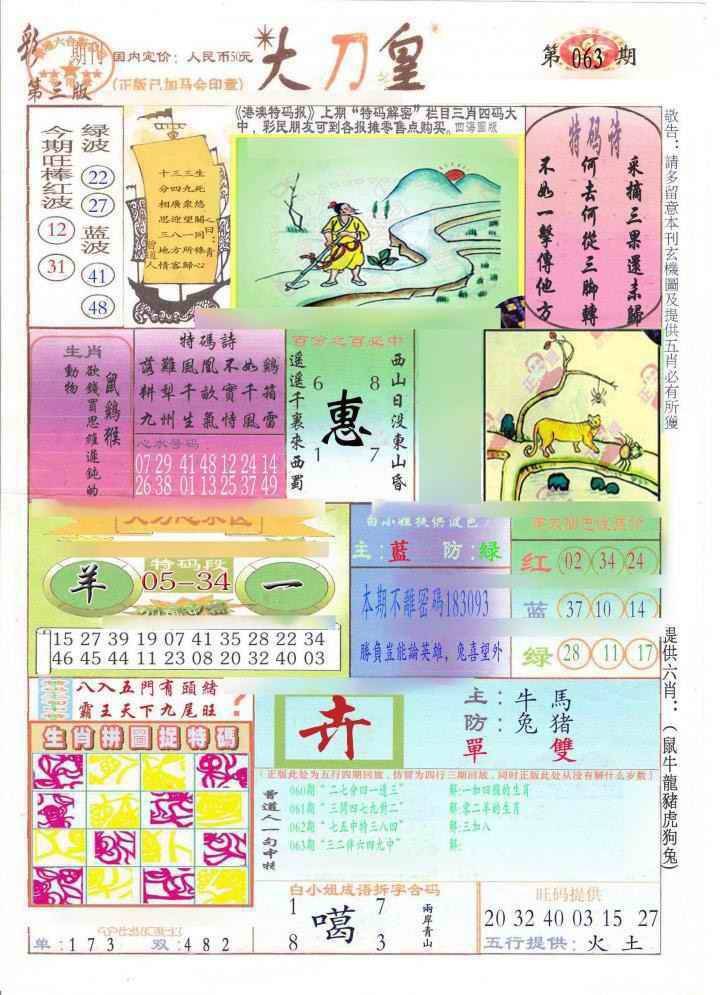 彩
期刊
第三版
国内定价：人民币50元
(正版已加马会印章)
大刀皇
第 063 期
《港澳特码报》上期“特码解密”栏目三肖四码大
中，彩民朋友可到各报摊零售点购买。四海圖版
今期旺棒红波
12
31
绿波
22
27
蓝波
41
48
十三三生
分四九死
相廣衆悠
思迎望關
三八一同
地方所條
情客歸心
曾道人
特码诗
采摘三果還未歸
何去何從三脚轉
不如一擊傳他方
敬告：請多留意本刊玄機圖及提供五肖必有所獲
生肖
動物
欲錢買思維遲鈍的
鼠鷄猴
特碼詩
落難鳳凰不如鷄
耕犁千畝實千箱
九州生氣恃風雷
心水号码
07 29 41 48 12 24 14
26 38 01 13 25 37 49
百分之百必中
遥遥千裏來西蜀
6 8
惠
1 7
西山日没東山昏
特码段
羊
05-34
一
15 27 39 19 07 41 35 28 22 34
46 45 44 11 23 08 20 32 40 03
白小姐提供波色
主：蓝 防：绿
本期不離密碼183093
勝負豈能論英雄，兔喜望外
红 02 34 24
蓝 37 10 14
绿 28 11 17
提供六肖：（鼠牛龍豬虎狗兔）
八入五門有頭緒
霸王天下九尾旺
?
生肖拼圖捉特碼
卉
主：牛 馬
防：兔 猪
單 雙
（正版此处为五行四期回放，仿冒为四行三期回放，同时正版此处从没有解什么岁数）
曾道人一句中特
060期“二七分四一連三” 解:一如四猴的生肖
061期“三閉四七九對二” 解:零二羊的生肖
062期“七五中特三八四” 解:三加八
063期“三二伴六四九中” 解:
单：1 7 3 双：4 8 2
白小姐成语拆字合码
1 7
噶
8 3
兩岸青山
旺码提供
20 32 40 03 15 27
五行提供：火 土